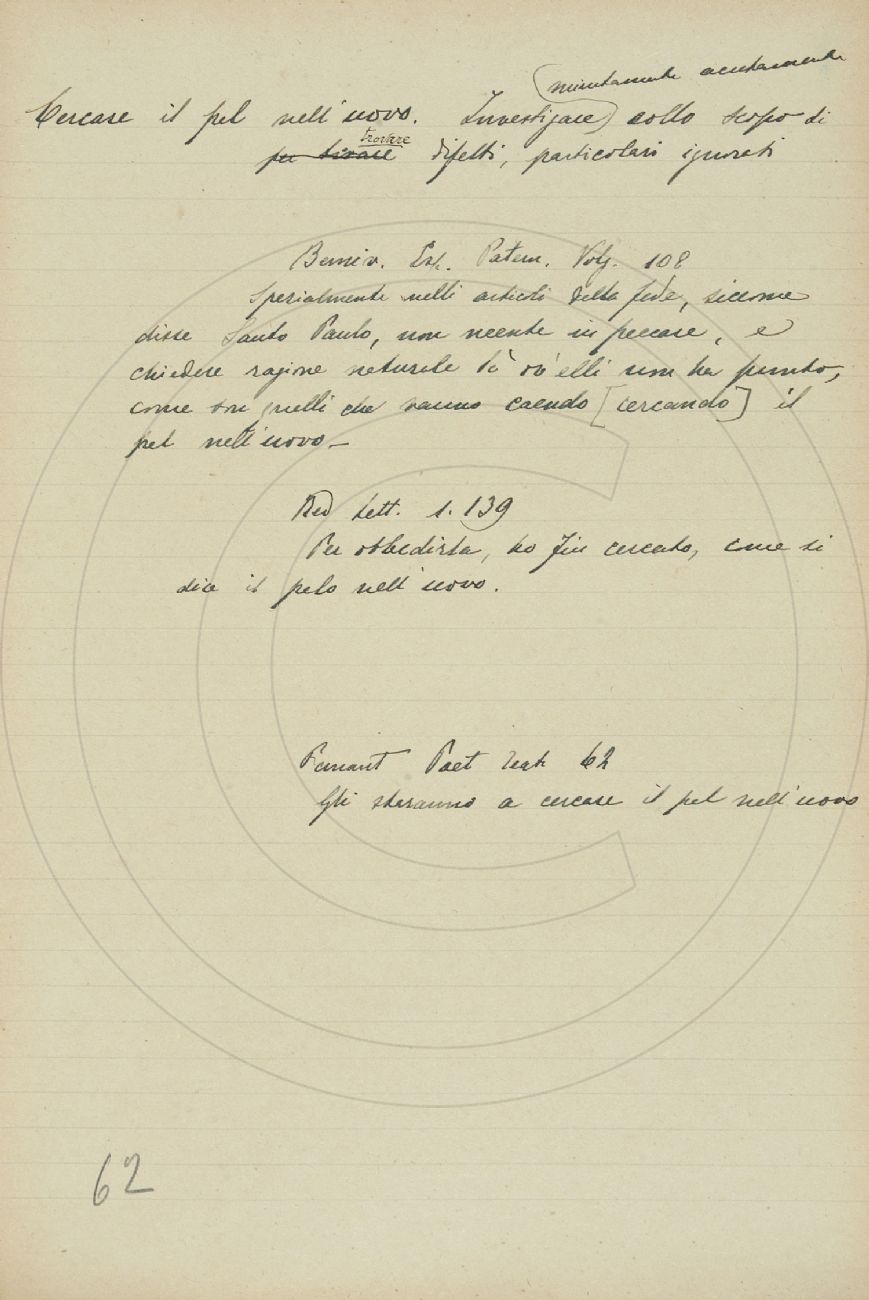 minutamente acutamente
Cercare il pel nell'uovo. Investigare collo scopo di
trovare
per trovare difetti, particolari ignorati
Esp. Patern. Volg. 108
Spezialmente nelli articoli della fede, siccome
disse Santo Paulo, non neente in peccare, e
chiedere ragione naturale là ov'elli non ha punto,
come son quelli che vanno caendo [cercando] il
pel nell'uovo—
Red Lett. 1. 139
Per obbedirla, ho fin cercato, come si
dice il pelo nell'uovo.
Poet teatr 62
Gli staranno a cercare il pel nell'uovo
62